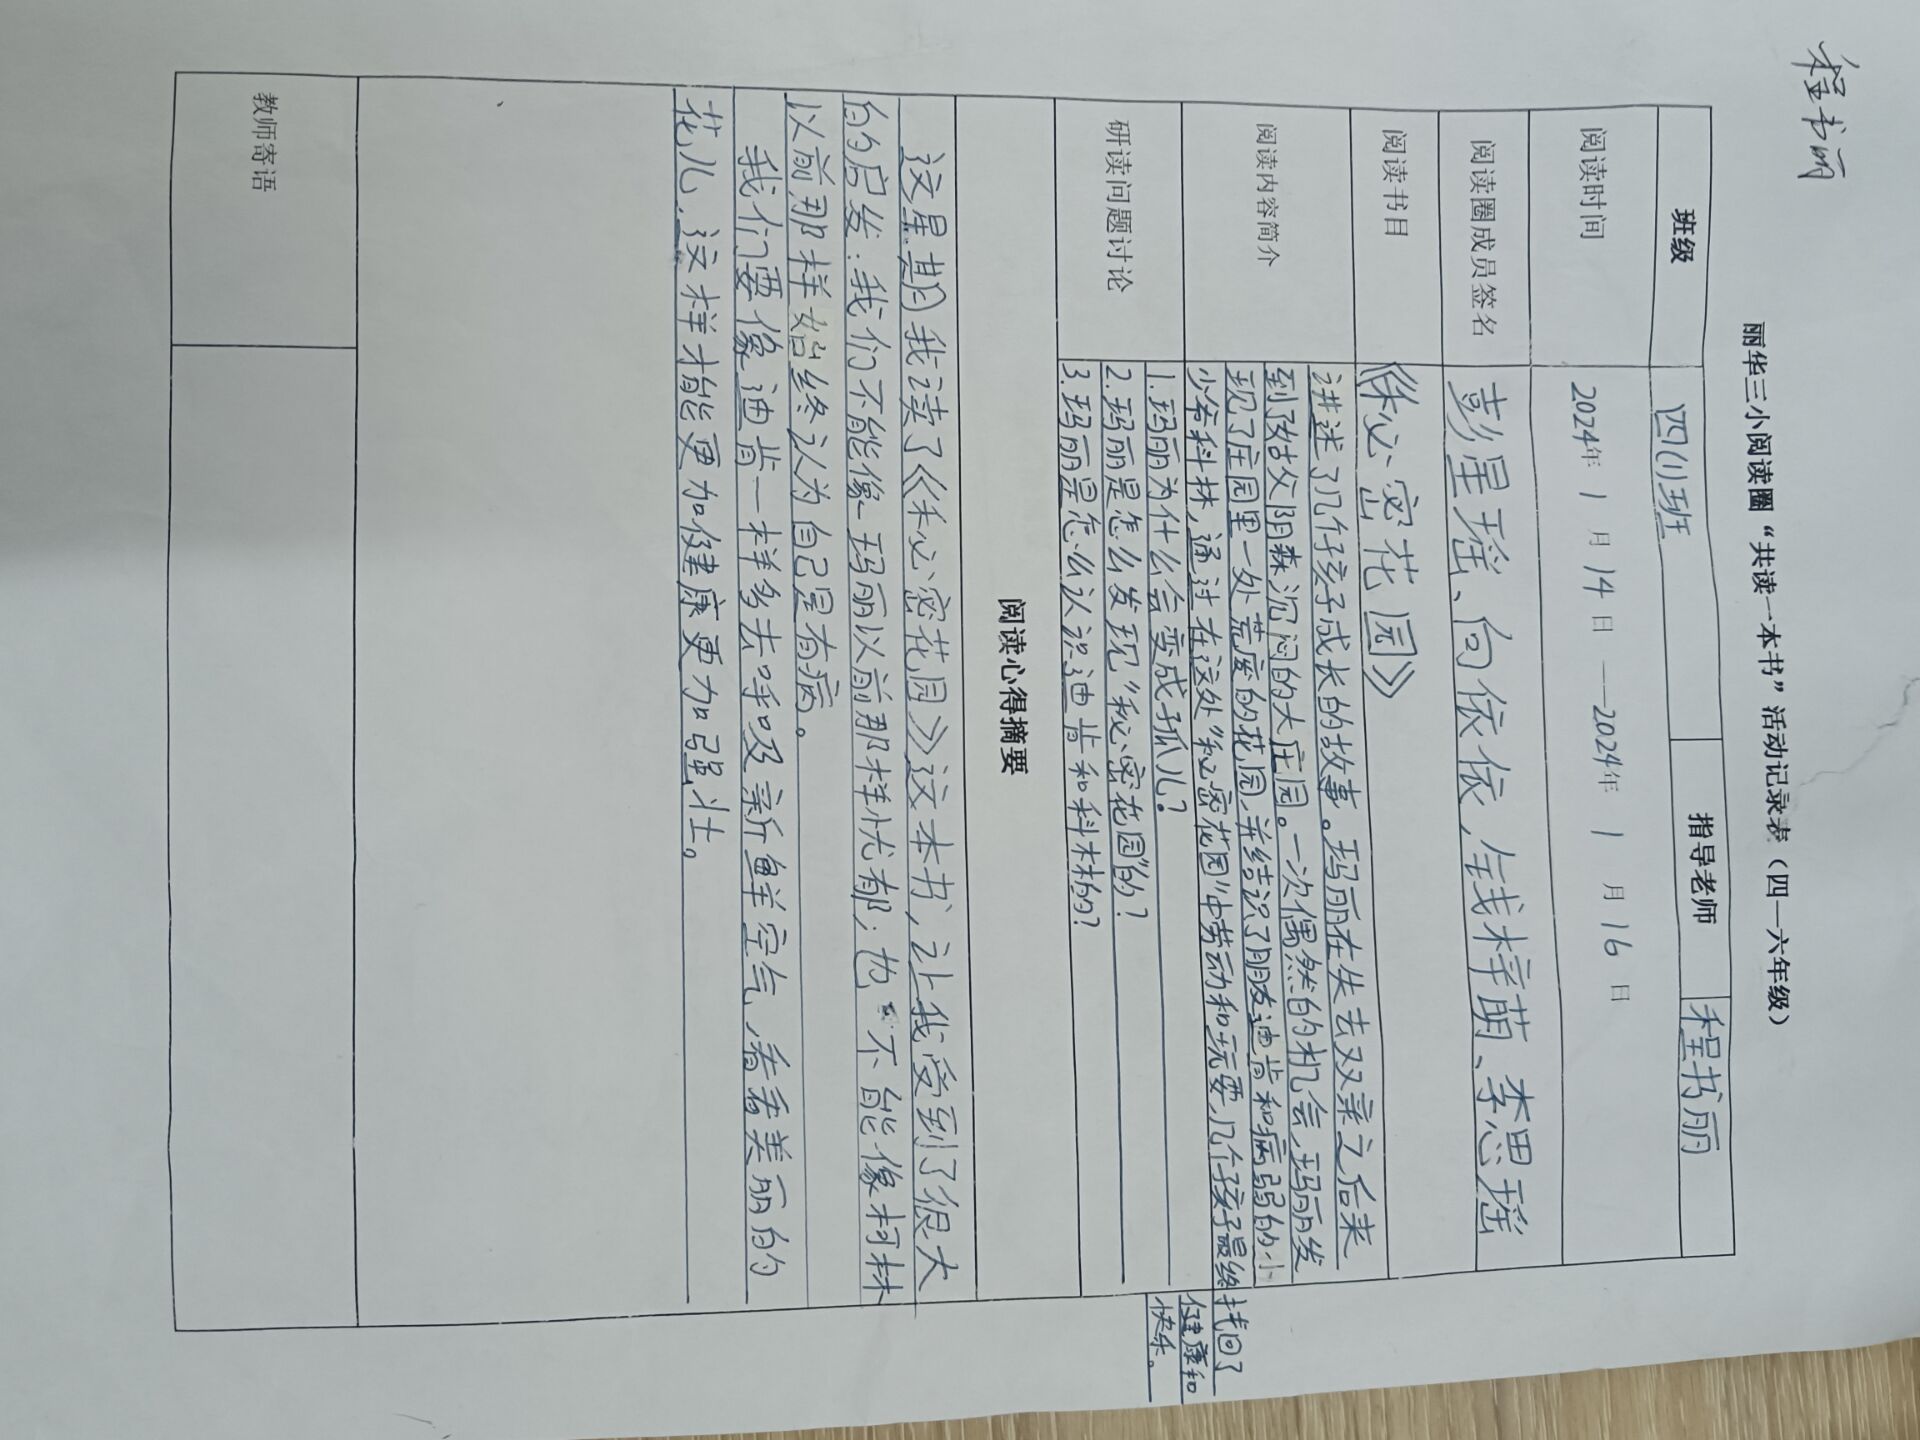 程书丽
丽华三小阅读圈“共读一本书”活动记录表（四—六年级）
班级 四(1)班 指导老师 程书丽
阅读时间 2024年 1 月 14 日 ——2024年 1 月 16 日
阅读圈成员签名 彭星瑶、向依依、钱梓萌、李思瑶
阅读书目 《秘密花园》
阅读内容简介
讲述了几个孩子成长的故事。玛丽在失去双亲之后来
到了姑父阴森沉闷的大庄园。一次偶然的机会,玛丽发
现了庄园里一处荒废的花园,并结识了朋友迪肯和病弱的小
少爷科林,通过在这处“秘密花园”中劳动和玩耍,几个孩子最终找回了
健康和
快乐。
研读问题讨论
1.玛丽为什么会变成孤儿?
2.玛丽是怎么发现“秘密花园”的?
3.玛丽是怎么认识迪肯和科林的?
阅读心得摘要
这星期我读了《秘密花园》这本书,让我受到了很大
的启发:我们不能像玛丽以前那样忧郁;也不能像柯林
以前那样始终认为自己是有病。
我们要像迪肯一样多去呼吸新鲜空气,看看美丽的
花儿,这样才能更加健康更加强壮。
教师寄语